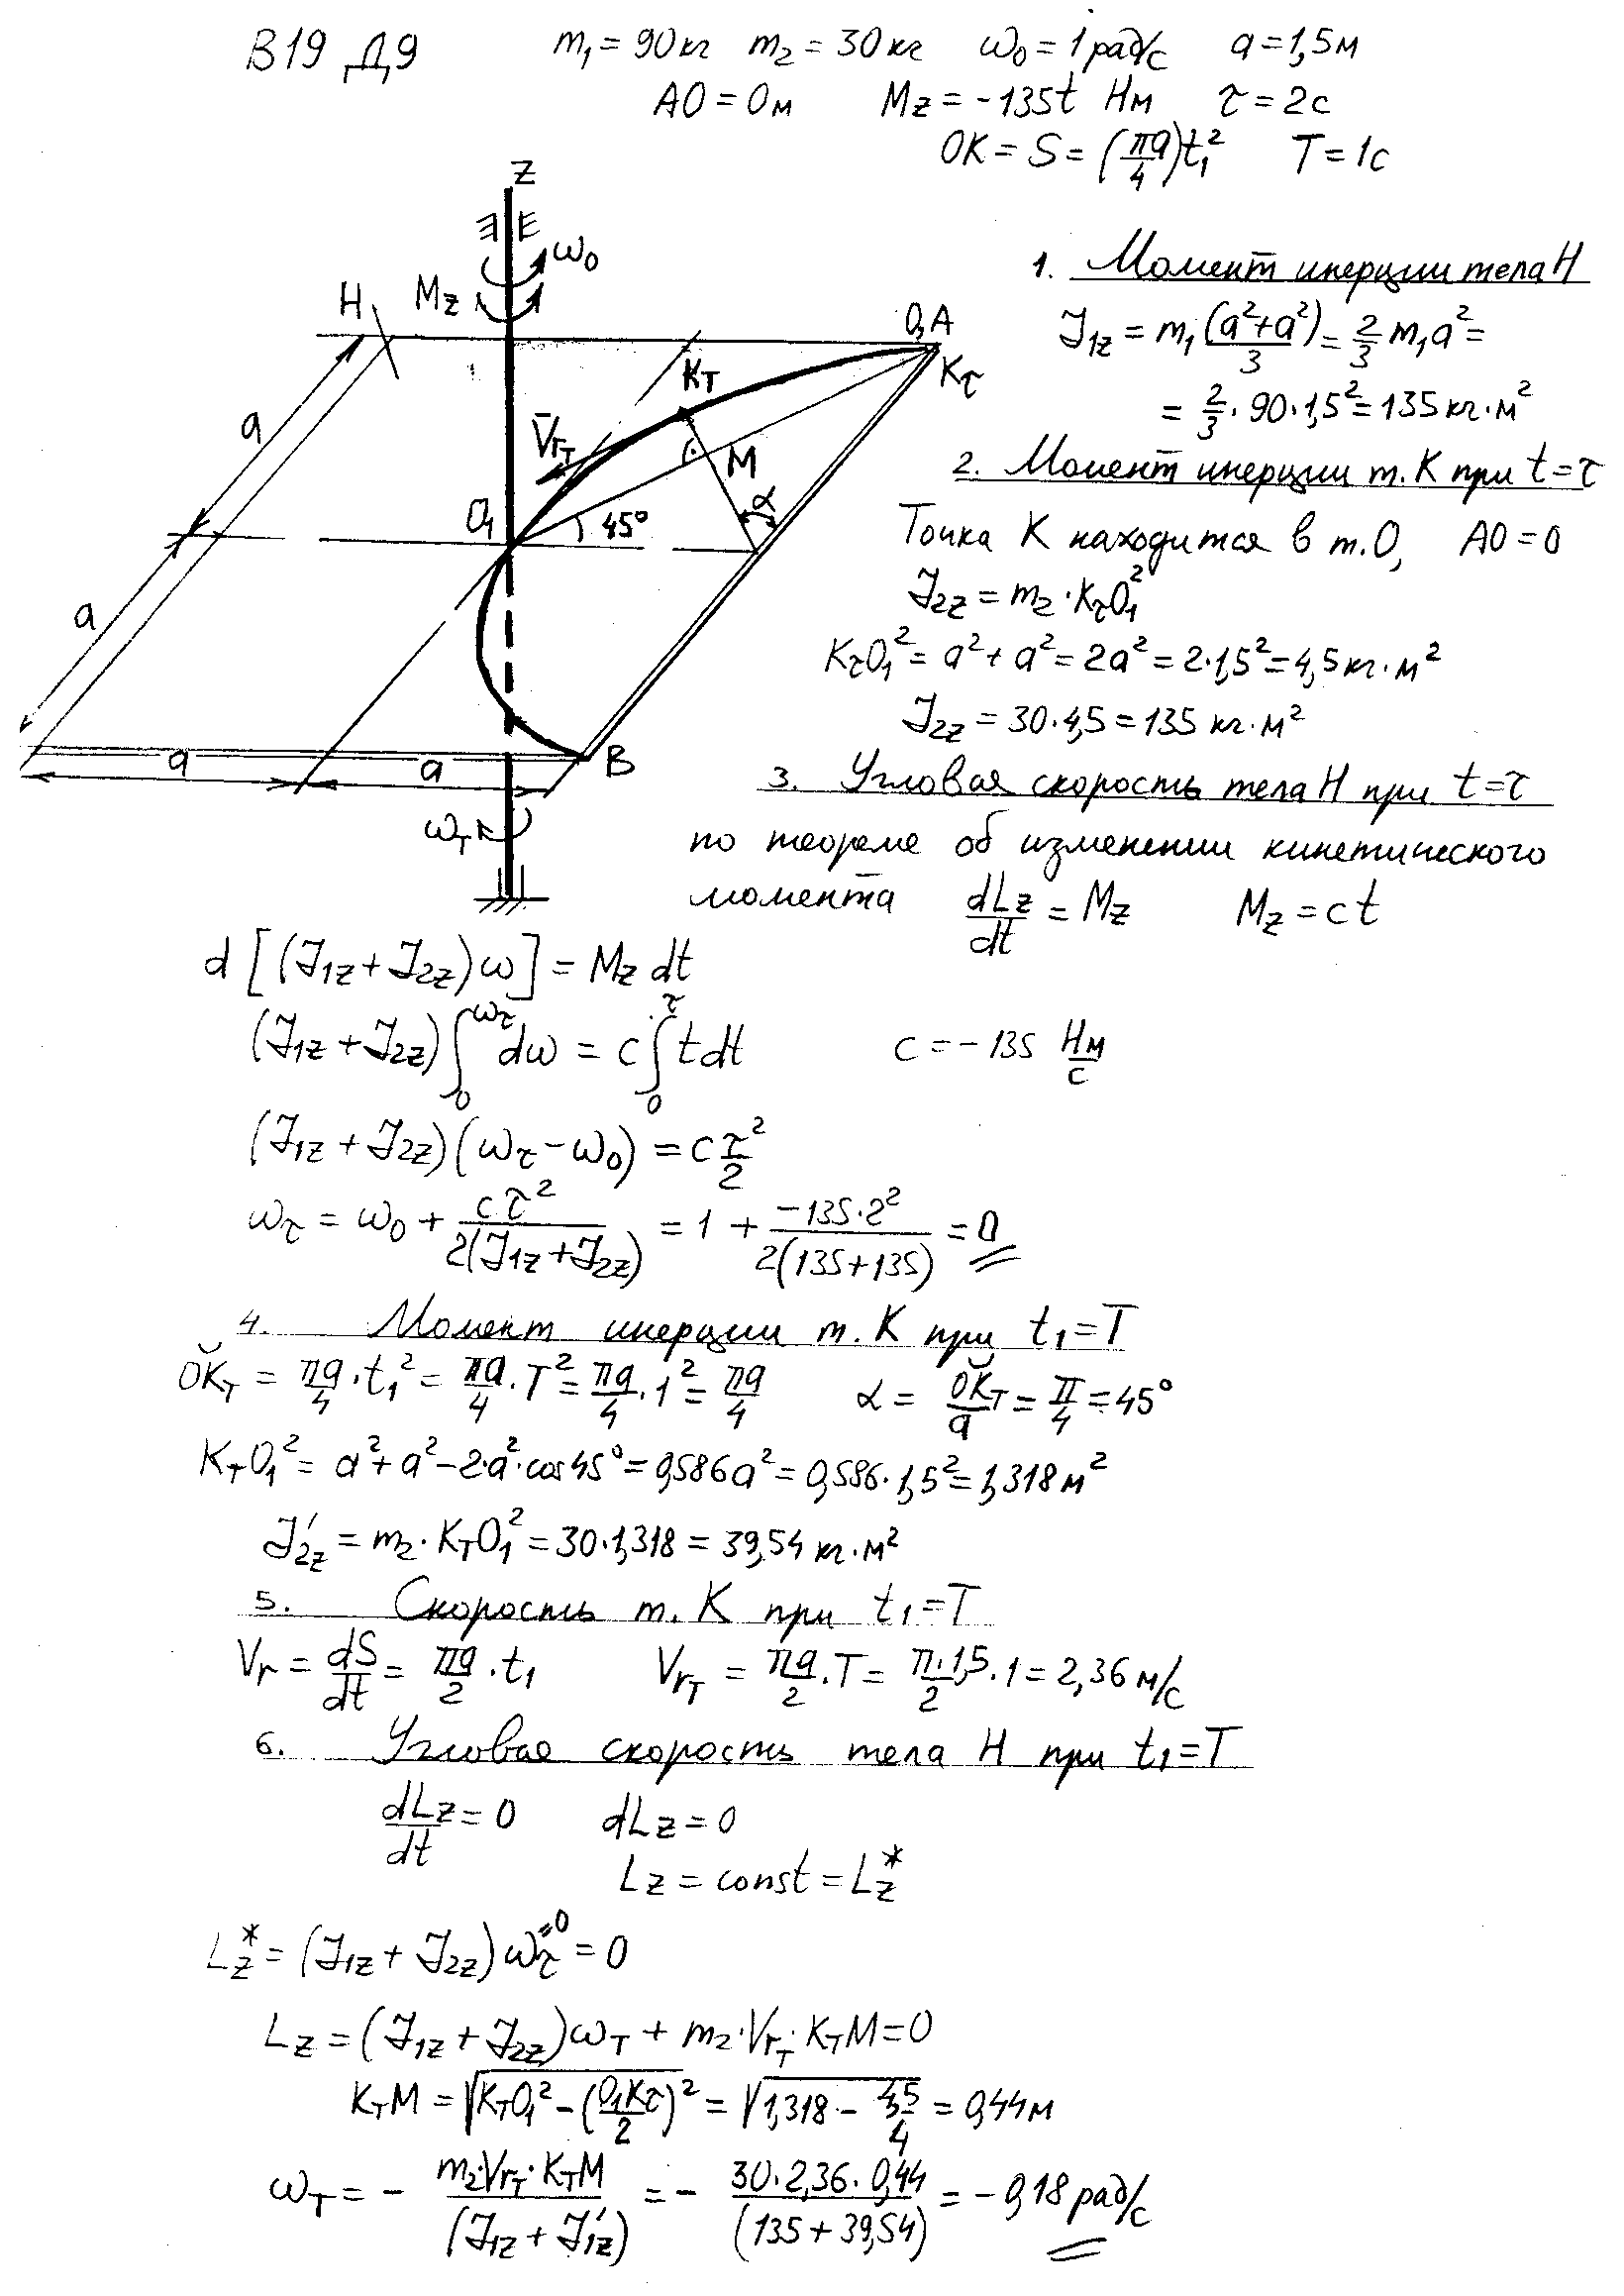 В19 Д9 m₁ = 90кг m₂ = 30кг ω₀ = 1 рад/с a = 1,5м
AO = 0м Mz = -135t Нм τ = 2с
OK = S = (πa/4)t₁² T = 1с
z
ω₀
Mz
H
O,A
Kτ
Kт
a
V̄rт
M
α
O₁
45°
a
a
a
B
ωт
1. Момент инерции тела H
J₁z = m₁(a²+a²)/3 = 2/3 m₁a² =
= 2/3 · 90 · 1,5² = 135 кг·м²
2. Момент инерции т. K при t=τ
Точка K находится в т.O, AO = 0
J₂z = m₂ · KτO₁²
KτO₁² = a² + a² = 2a² = 2·1,5² = 4,5 кг·м²
J₂z = 30·4,5 = 135 кг·м²
3. Угловая скорость тела H при t=τ
по теореме об изменении кинетического
момента dLz/dt = Mz Mz = ct
d[(J₁z + J₂z)ω] = Mz dt
(J₁z + J₂z)∫₀^ωτ dω = c∫₀^τ t dt c = -135 Нм/с
(J₁z + J₂z)(ωτ - ω₀) = c τ²/2
ωτ = ω₀ + cτ²/2(J₁z + J₂z) = 1 + -135·2²/2(135+135) = 0
4. Момент инерции т. K при t₁=T
OKт = πa/4 · t₁² = πa/4 · T² = πa/4 · 1² = πa/4 α = OKт/a = π/4 = 45°
KтO₁² = a² + a² - 2·a²·cos45° = 0,586a² = 0,586·1,5² = 1,318м²
J₂z' = m₂·KтO₁² = 30·1,318 = 39,54 кг·м²
5. Скорость т. K при t₁=T
Vr = dS/dt = πa/2 · t₁ Vrт = πa/2 · T = π·1,5/2 · 1 = 2,36 м/с
6. Угловае скорость тела H при t₁=T
dLz/dt = 0 dLz = 0
Lz = const = Lz*
Lz* = (J₁z + J₂z)ωτ⁼⁰ = 0
Lz = (J₁z + J₂z)ωт + m₂·Vrт·KтM = 0
KтM = √(KтO₁² - (O₁Kτ/2)²) = √(1,318 - 4,5/4) = 0,44м
ωт = - m₂·Vrт·KтM/(J₁z + J₁z') = - 30·2,36·0,44/(135 + 39,54) = - 0,18 рад/с